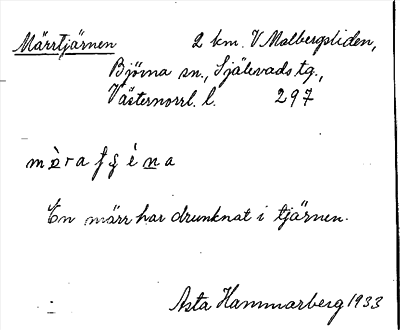 Märrtjärnen 2 km. V Malbergsliden,
Björna sn., Själevads tg.,
Västernorrl. l. 297
En märr har drunknat i tjärnen.
Asta Hammarberg 1933